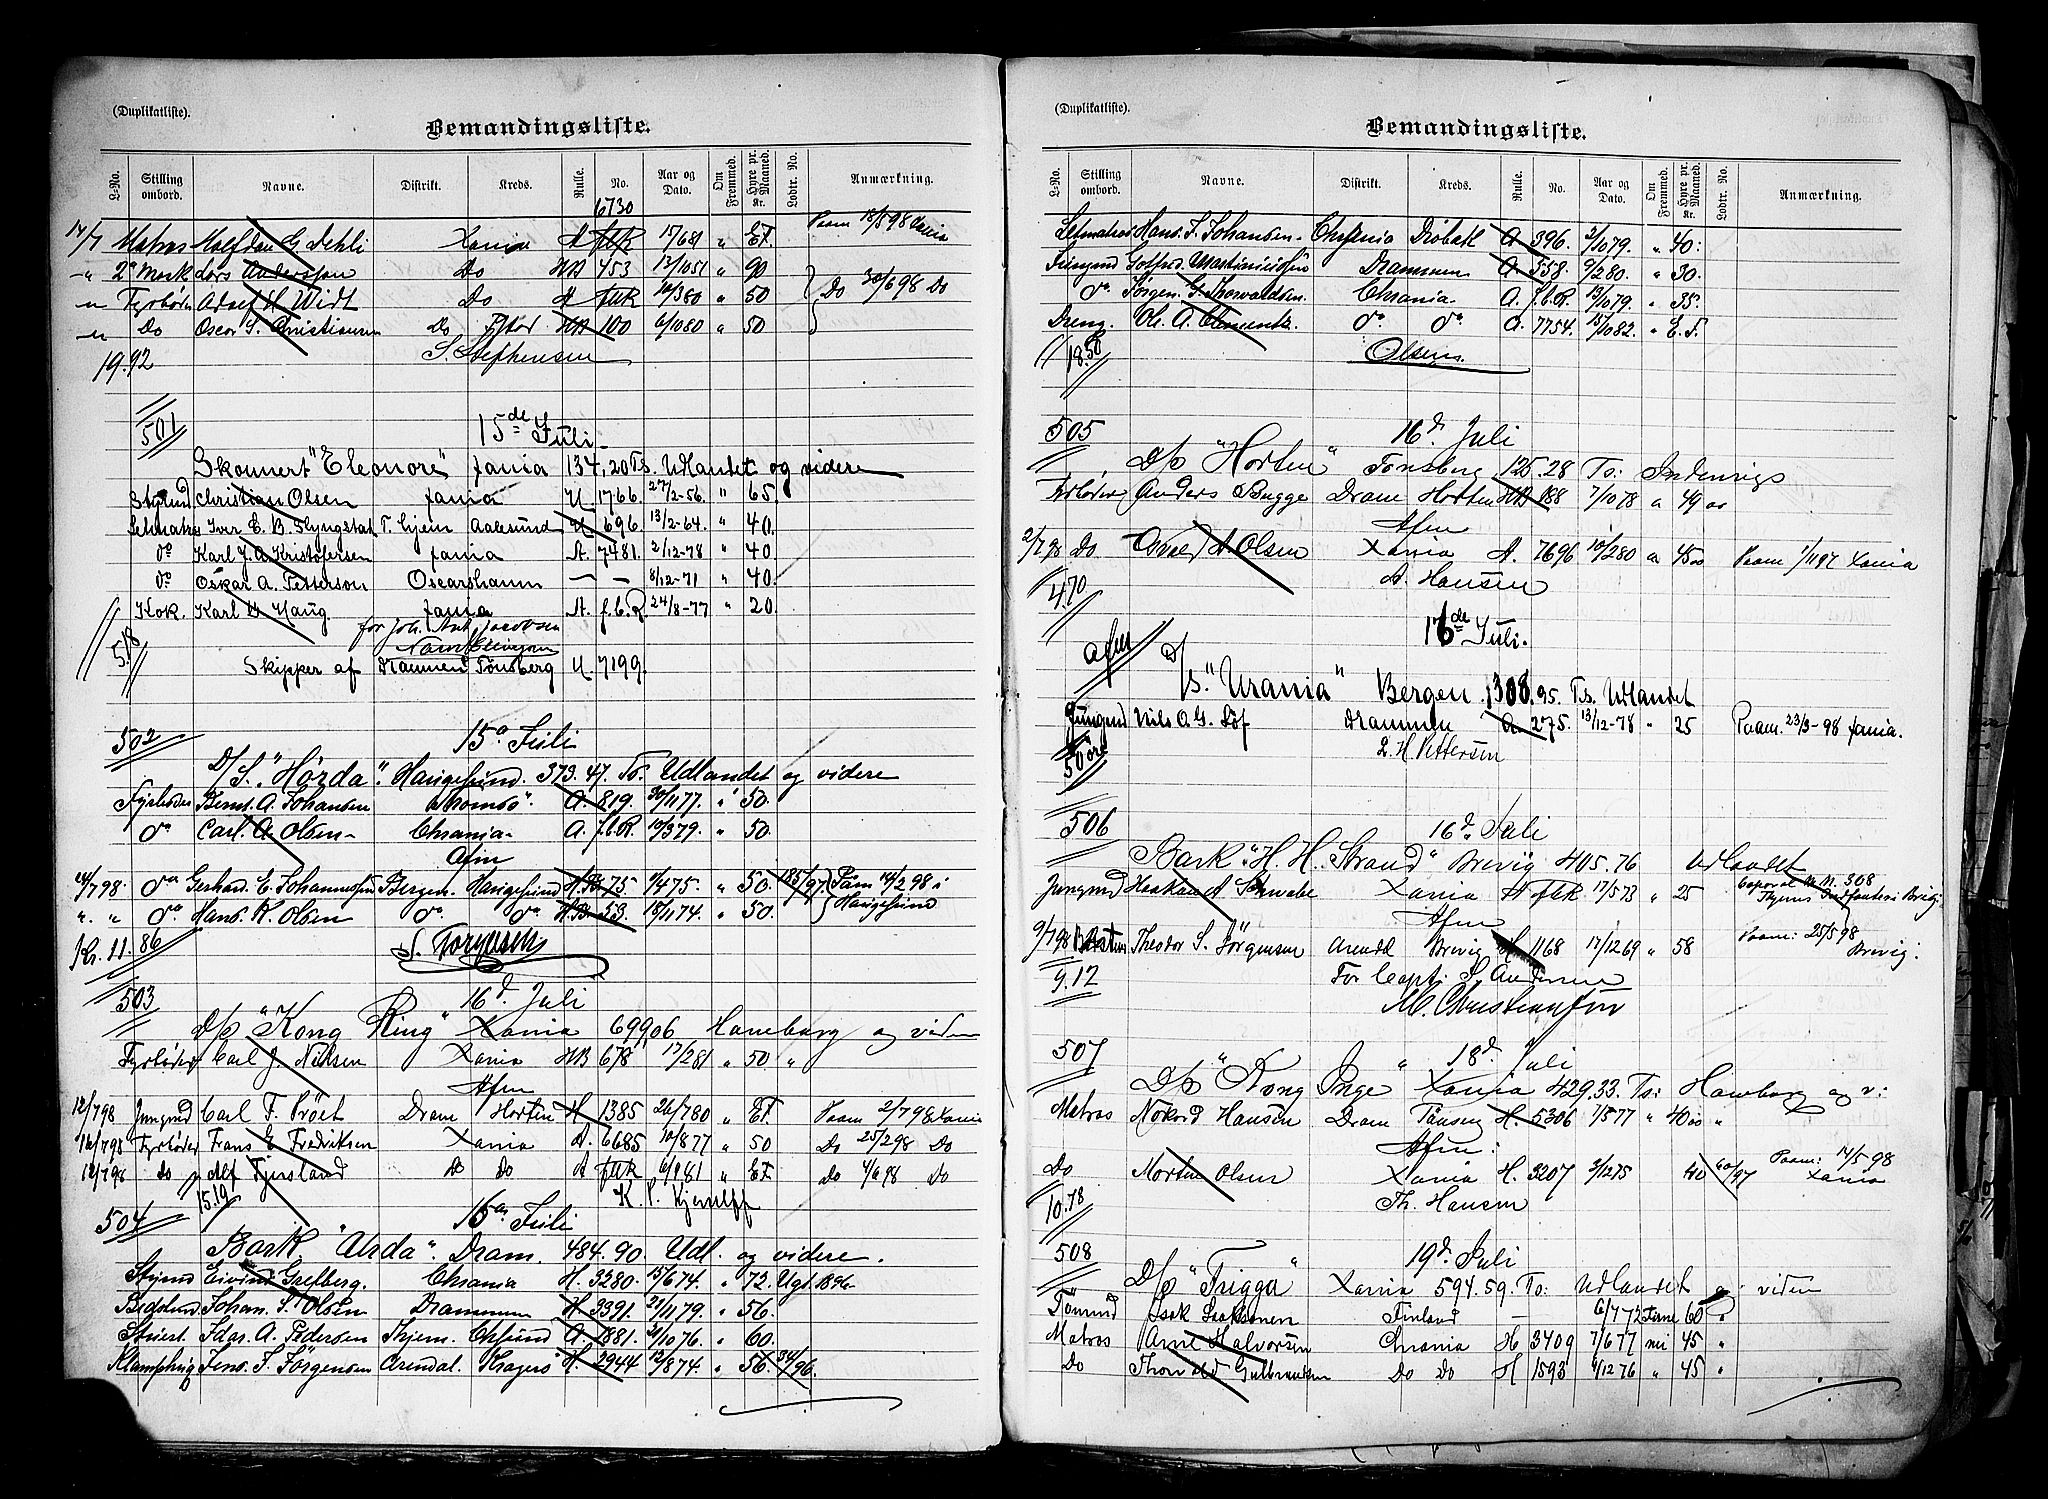 (Duplikatliste).
Bemandingsliste.
L-No. Stilling ombord. Navne. Distrikt. Kreds. Rulle. No. Aar og Dato. Om Fremmed. Hyre pr. Maaned. Kr. Lodtr. No. Anmærkning.
6730
14/7 Matros G Dehli Xania A fbR 15/6 81 " EF. Paam 18/5 98 Xania
" 2den Mask Lars Andersson Do HB 453 13/10 51 " 90
" Fyrbøder Adolf H Widt Do A fbR /3 80 " 50 Do 30/6 98 Do
" Do Oscar S. Christiansen Do HB 100 6/10 80 " 50
19.92 S Stephensen
501 15de Juli
Skonnert "Eleonore" Xania 134,20 Ts. Udlandet og videre
Styrmd Christian Olsen Xania U 1766. 27/2-56. " 65
Letmatros Iver E. B. Flyngstad T.hjem Aalesund U 696. 13/2-64. " 40.
do Karl J. A Kristofersen Xania A. 7481. 2/12-78 " 40.
do Oskar A. Petterson Oscarshamn — — 8/12-71 " 40.
Kok. Karl Haug Xania A. f.b.R 24/8-77 " 20.
for Joh. Ant. Jacobsen
5.18
Skipper af Drammen Tønsberg U. 7199.
502 15d Juli
D/S. "Hörda". Haugesund. 373.47. To. Udlandet og videre
Fyrbøder Bernt. A. Johansen Tromsø. A. 819. 30/11 77. " 50.
do Carl. A. Olsen Chrania A. f.b.R. 10/3 79. " 50.
Afm
14/7 98 do Gerhard. E. Johannessen Bergen. Haugesund H.B. 75. 1/4 75. " 50. 185/97. Paam 14/2 98 i
" " do Hans. K. Olsen do do H.B. 53. 18/11 74. " 50. Haugesund
Kr. 11.86 S. Torgersen
503 16d Juli
D/s "Kong Ring" Xania 699 06 Hamburg og videre
Fyrbøder Carl J. Nielsen Xania HB 678 17/2 81 " 50 "
Afm
12/7 98 Jungmd Carl F. Pröet Dram Horten H 1385 26/7 80 " EF. Paam 2/7 98 Xania
16/7 98 Fyrbøder Frans E Fredriksen Xania A. 6685 10/8 77 " 50 Do 25/2 98 Do
12/7 98 do Alf Fjorsland Do Do A fbR 6/9 81 " EF Do 4/6 98 Do
15.19
504 16d Juli
Bark "Alida". Dram. 484.90. Udl. og videre.
Styrmd Eivind Grefberg. Chrania H. 3280. 15/6 74. " 72. Ugt. 1896.
Bedstmd Johan. S. Olsen Drammen H. 3391. 21/11 79. " 56.
Stuert. Idar. A. Pedersen Thjem. Chrsund A. 1881. /10 76. " 60.
Klamphug Jens. F. Jörgensen Arendal. Kragerø H. 2944 12/8 74. " 56. 34/96.
(Duplikatliste).
Bemandingsliste.
L-No. Stilling ombord. Navne. Distrikt. Kreds. Rulle. No. Aar og Dato. Om Fremmed. Hyre pr. Maaned. Kr. Lodtr. No. Anmærkning.
Letmatros Hans. F. Johansen. Chrania Drøbak A. 396. 2/10 79. " 40.
Jungmd Gotfred. Martiniussen Drammen A. 558. 9/2 80. " 30.
do Jörgen. G. Thorvaldsen. Chrania. A. f.b.R. 13/10 79. " 35.
Dreng. Ole. A. Clementz. do do A. 7754. 15/10 82. " E.F.
18.50 Olsen.
505 16d. Juli
D/s "Horten" Tønsberg 125.28 To: Indenrigs
Fyrbøder Anders Bugge Dram Horten HB 188 7/10 78 " 49 00
Afm
2/7 98 Do A Olsen Xania A. 7696 10/2 80 " 45 00 Paam 7/11 97 Xania
4.70 A. Hansen
16de Juli.
afm D/s. "Urania" Bergen. 1308.95. Ts. Udlandet
Jungmd Nils A. G. Löf Drammen A. 275. 13/12-78 " 25 Paam. 23/3-98 Xania.
50 øre L. H. Pettersen
506 16d. Juli
Bark "H. H. Strand" Brevig 405.76 Udlandet
Jungmd Haakon A Schwabe Xania A fbR 17/5 73 " 25
Afm
9/7 98 Theodor S. Jörgensen Arendl Brevig H. 1168 17/12 69 " 58 Paam: 25/5 98 Brevig.
9.12 For Capt: S. Andersen
M. Christiansen
507 18d. Juli
D/s "Kong Inge" Xania 429.33. To: Hamburg og v:
Matros Nökord Hansen Dram Tönsbg H. 5306 7/5 77 " 40 00 "
Afm:
Do Morten Olsen Xania H. 3207 2/12 75 40 60/97 Paam: 14/5 98 Xania
10.78 Th. Hansen
508 19d. Juli
D/s "Frigga" Xania 594.59. To: Udlandet og viden
Tömmd Isak Isaksonen Finland — 6/7 72 Finne 60 "
Matros Arne Halvorsen Chrania H 3409 7/6 77 nei 45 "
Do Thorvald Gulbrandsen Do Do H 1593 9/12 76 " 45 "